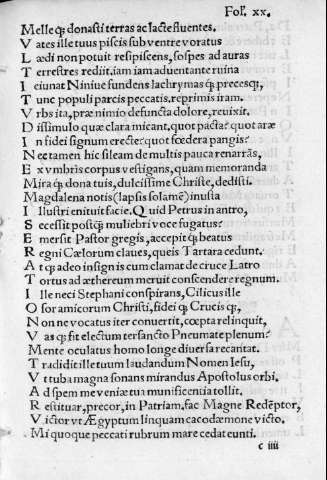 Fol. xx.
Melle qꝫ donasti terras ac lacte fluentes.
V ates ille tuus piscis sub ventre voratus
L ædi non potuit respiscens, sospes ad auras
T errestres rediit. iam iam aduentante ruina
I eiunat Niniue fundens lachrymas qꝫ precesqꝫ,
T unc populi parcis peccatis. reprimis iram.
V rbs ita, præ nimio defuncta dolore, reuixit.
D issimulo quæ clara micant, quot pacta? quot aræ
I n fidei signum erectæ? quot fœdera pangis?
N ec tamen hic sileam de multis pauca renarrãs,
E x vmbris corpus vestigans, quam memoranda
M ira qꝫ dona tuis, dulcissime Christe, dedisti.
M agdalena notis (lapsis solamẽ) inusta
I llustri enituit facie. Quid Petrus in antro,
S ecessit postqꝫ muliebri voce fugatus?
E mersit Pastor gregis, accepit qꝫ beatus
R egni Cælorum claues, queis Tartara cedunt.
A t qꝫ adeo insignis cum clamat de cruce Latro
T ortus ad æthereum meruit conscendere regnum.
I lle neci Stephani conspirans, Cilicus ille
O sor amicorum Christi, fidei qꝫ Crucis qꝫ,
N on ne vocatus iter conuertit, cœpta relinquit,
V as qꝫ fit electum ter sancto Pneumate plenum?
M ente oculatus homo longe diuersa recantat.
T radidit ille tuum laudandum Nomen Iesu,
V t tuba magna sonans mirandus Apostolus orbi.
A d spem me veniæ tua munificentia tollit.
R estituar, precor, in Patriam. fac Magne Redẽptor,
V ictor vt Ægyptum linquam cacodæmone victo.
M i quoque peccati rubrum mare cedat eunti.
c iiii